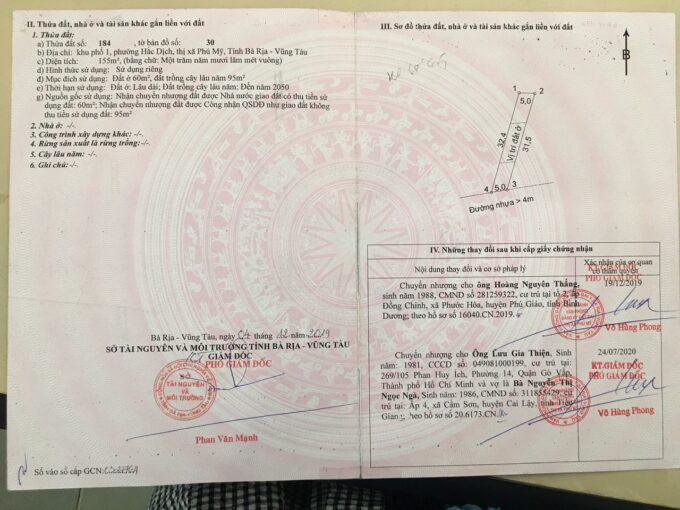 II. Thửa đất, nhà ở và tài sản khác gắn liền với đất
1. Thửa đất:
a) Thửa đất số: 184, tờ bản đồ số: 30
b) Địa chỉ: khu phố 1, phường Hắc Dịch, thị xã Phú Mỹ, Tỉnh Bà Rịa - Vũng Tàu
c) Diện tích: 155m², (bằng chữ: Một trăm năm mươi lăm mét vuông)
d) Hình thức sử dụng: Sử dụng riêng
đ) Mục đích sử dụng: Đất ở 60m², đất trồng cây lâu năm 95m²
e) Thời hạn sử dụng: Đất ở: Lâu dài; Đất trồng cây lâu năm: Đến năm 2050
g) Nguồn gốc sử dụng: Nhận chuyển nhượng đất được Nhà nước giao đất có thu tiền sử
dụng đất: 60m²; Nhận chuyển nhượng đất được Công nhận QSDĐ như giao đất không
thu tiền sử dụng đất: 95m²
2. Nhà ở: -/-
3. Công trình xây dựng khác: -/-
4. Rừng sản xuất là rừng trồng: -/-
5. Cây lâu năm: -/-
6. Ghi chú: -/-
Bà Rịa - Vũng Tàu, ngày 04 tháng 12 năm 2019
SỞ TÀI NGUYÊN VÀ MÔI TRƯỜNG TỈNH BÀ RỊA - VŨNG TÀU
KT. GIÁM ĐỐC
PHÓ GIÁM ĐỐC
SỞ
TÀI NGUYÊN
VÀ
MÔI TRƯỜNG
Phan Văn Mạnh
Số vào sổ cấp GCN:
III. Sơ đồ thửa đất, nhà ở và tài sản khác gắn liền với đất
B
1
2
5,0
32,4
Vị trí đất ở
31,5
4
5,0
3
Đường nhựa > 4m
IV. Những thay đổi sau khi cấp giấy chứng nhận
Nội dung thay đổi và cơ sở pháp lý
Xác nhận của cơ quan
có thẩm quyền
Chuyển nhượng cho ông Hoàng Nguyên Thắng,
sinh năm 1988, CMND số 281259322, cư trú tại tổ 2, ấp
Đồng Chinh, xã Phước Hòa, huyện Phú Giáo, tỉnh Bình
Dương; theo hồ sơ số 16040.CN.2019.
19/12/2019
KT.GIÁM ĐỐC
PHÓ GIÁM ĐỐC
Võ Hùng Phong
Chuyển nhượng cho Ông Lưu Gia Thiện, Sinh
năm: 1981, CCCD số: 049081000199, cư trú tại:
269/105 Phan Huy Ích, Phường 14, Quận Gò Vấp,
Thành phố Hồ Chí Minh và vợ là Bà Nguyễn Thị
Ngọc Ngà, Sinh năm: 1986, CMND số: 311855429, cư
trú tại: Ấp 4, xã Cẩm Sơn, huyện Cai Lậy, tỉnh Tiền
Giang; theo hồ sơ số 20.6173.CN.
24/07/2020
KT.GIÁM ĐỐC
PHÓ GIÁM ĐỐC
Võ Hùng Phong